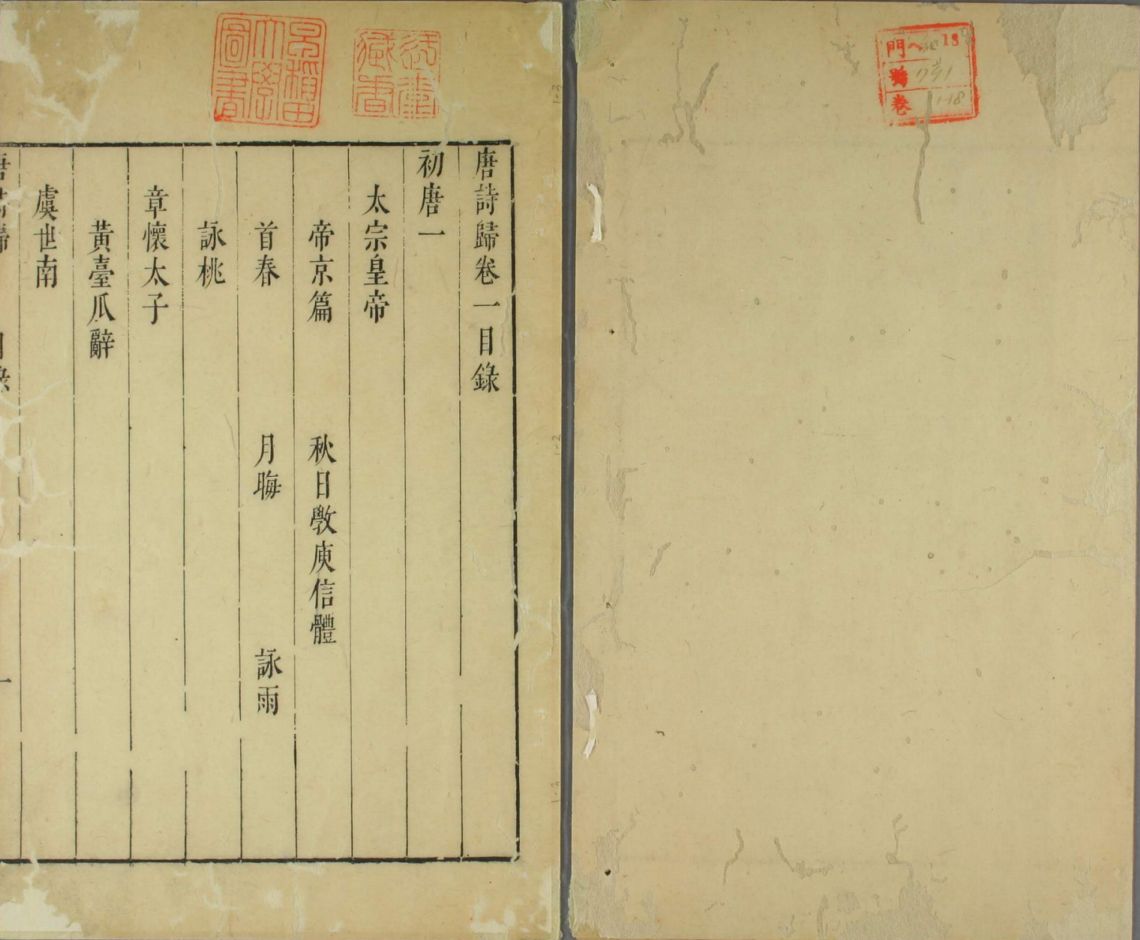 門 ヘ 18
號 1791
卷 1-18
早稲田大學圖書
唐詩歸卷一目錄
初唐一
太宗皇帝
帝京篇 秋日斆庾信體
首春 月晦 詠雨
詠桃
章懷太子
黃臺瓜辭
虞世南
唐詩歸 目錄 一